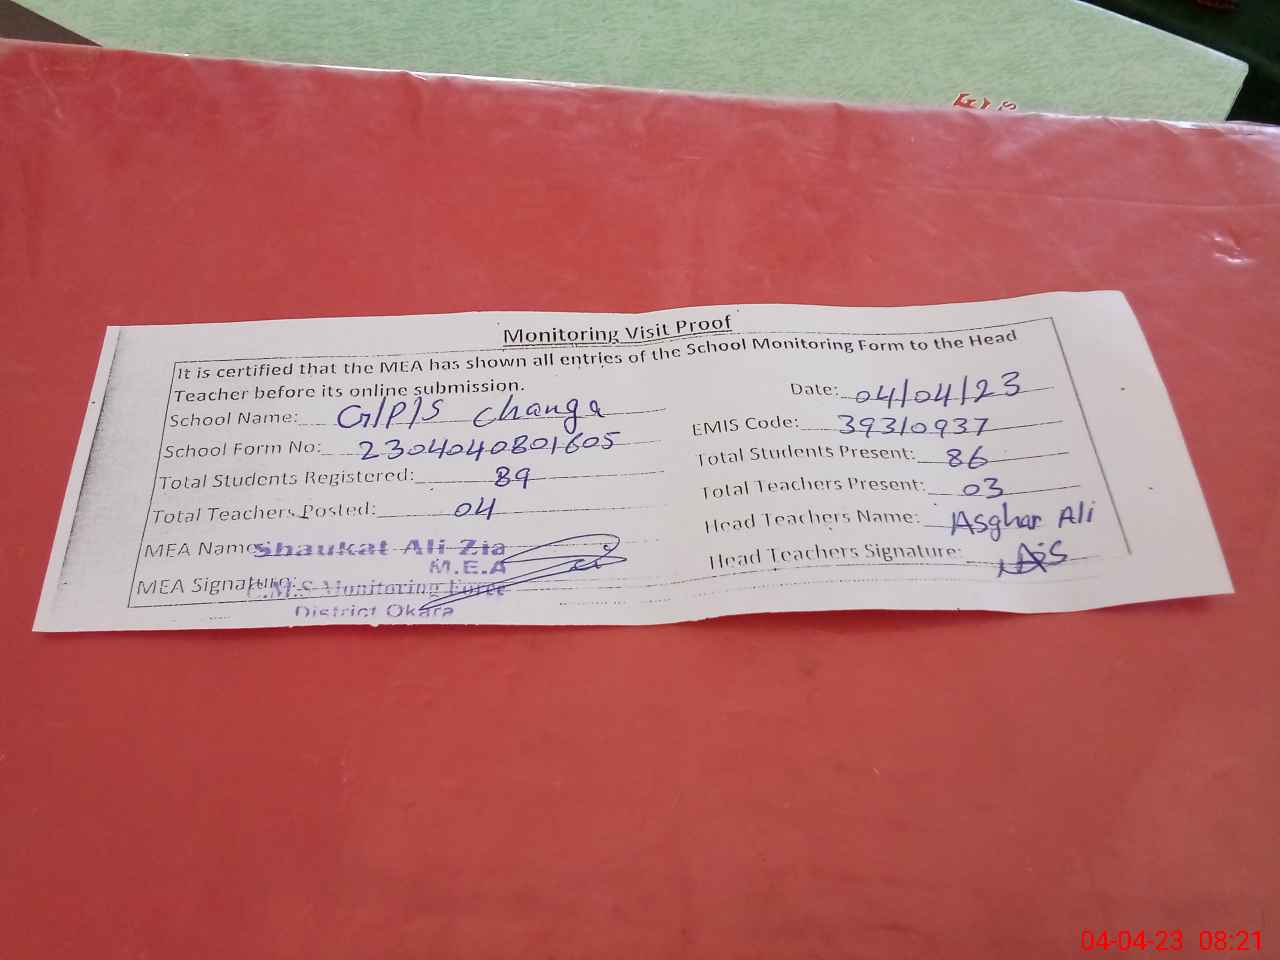 Monitoring Visit Proof
It is certified that the MEA has shown all entries of the School Monitoring Form to the Head
Teacher before its online submission.
Date: 04/04/23
School Name: G/P/S Changa
EMIS Code: 39310937
School Form No: 2304040801605
Total Students Present: 86
Total Students Registered: 89
Total Teachers Present: 03
Total Teachers Posted: 04
Head Teachers Name: Asghar Ali
MEA Name: Shaukat Ali Zia
M.E.A
Head Teachers Signature:
MEA Signature:
C.M.S Monitoring Force
District Okara
04-04-23 08:21